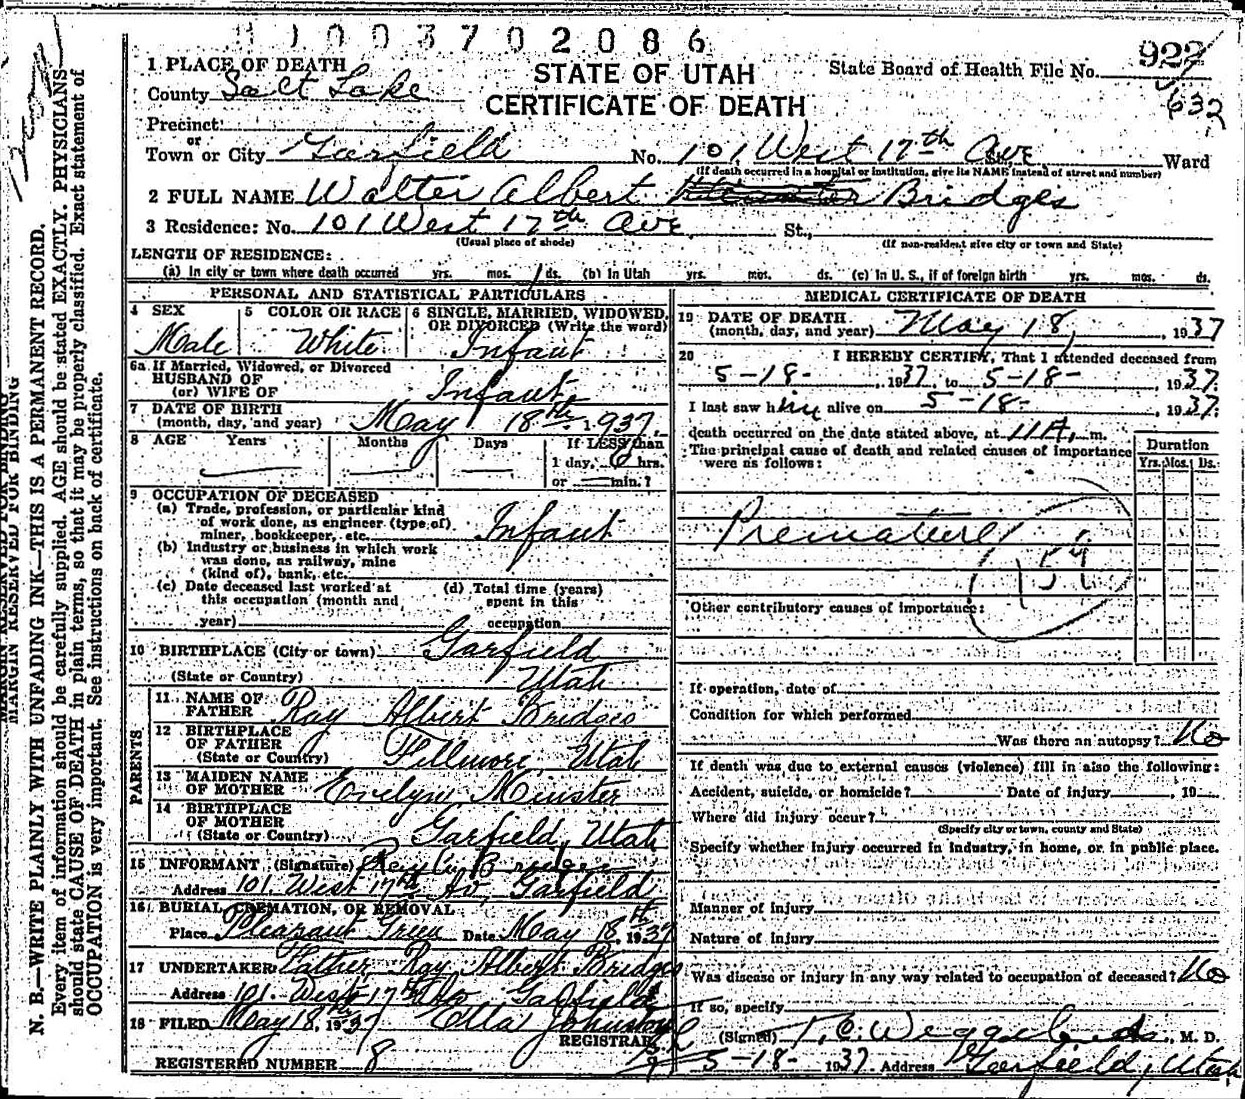 11003702086
1 PLACE OF DEATH
STATE OF UTAH
CERTIFICATE OF DEATH
State Board of Health File No. 927
632
County Salt Lake
Precinct
or
Town or City Garfield No. 101 West 17th Ave St., Ward
(If death occurred in a hospital or institution, give its NAME instead of street and number)
2 FULL NAME Walter Albert Bridges
3 Residence: No. 101 West 17th Ave St.,
(Usual place of abode) (If non-resident give city or town and State)
LENGTH OF RESIDENCE:
(a) In city or town where death occurred yrs. mos. 1 ds. (b) In Utah yrs. mos. ds. (c) In U. S., if of foreign birth yrs. mos. ds.
PERSONAL AND STATISTICAL PARTICULARS
4 SEX Male
5 COLOR OR RACE White
6 SINGLE, MARRIED, WIDOWED, OR DIVORCED (Write the word) Infant
6a If Married, Widowed, or Divorced
HUSBAND OF
(or) WIFE OF Infant
7 DATE OF BIRTH
(month, day, and year) May 18th 1937.
8 AGE Years Months Days If LESS than
1 day, 6 hrs.
or min.?
9 OCCUPATION OF DECEASED
(a) Trade, profession, or particular kind
of work done, as engineer (type of)
miner, bookkeeper, etc. Infant
(b) Industry or business in which work
was done, as railway, mine
(kind of), bank, etc.
(c) Date deceased last worked at
this occupation (month and
year)
(d) Total time (years)
spent in this
occupation
10 BIRTHPLACE (City or town) Garfield
(State or Country) Utah
PARENTS
11 NAME OF
FATHER Ray Albert Bridges
12 BIRTHPLACE
OF FATHER
(State or Country) Fillmore, Utah
13 MAIDEN NAME
OF MOTHER Evelyn Minster
14 BIRTHPLACE
OF MOTHER
(State or Country) Garfield, Utah
15 INFORMANT (Signature) Ray A Bridges
Address 101 West 17th Av, Garfield
16 BURIAL, CREMATION, OR REMOVAL
Place Pleasant Green Date May 18th, 1937
17 UNDERTAKER Father Ray Albert Bridges
Address 101 West 17th Av Garfield
18 FILED May 18th, 1937 Ella Johnston
REGISTRAR
REGISTERED NUMBER 8
MEDICAL CERTIFICATE OF DEATH
19 DATE OF DEATH
(month, day, and year) May 18, 1937
20 I HEREBY CERTIFY, That I attended deceased from
5-18-, 1937 to 5-18-, 1937.
I last saw him alive on 5-18-, 1937.
death occurred on the date stated above, at 11 A. m.
The principal cause of death and related causes of importance
were as follows:
Duration
Yrs. Mos. Ds.
Premature
159
Other contributory causes of importance:
If operation, date of
Condition for which performed
Was there an autopsy? No
If death was due to external causes (violence) fill in also the following:
Accident, suicide, or homicide? Date of injury , 19
Where did injury occur?
(Specify city or town, county and State)
Specify whether injury occurred in industry, in home, or in public place.
Manner of injury
Nature of injury
Was disease or injury in any way related to occupation of deceased? No
If so, specify
(Signed) , M. D.
5-18- 1937 Address Garfield, Utah
N. B.—WRITE PLAINLY WITH UNFADING INK—THIS IS A PERMANENT RECORD.
Every item of information should be carefully supplied. AGE should be stated EXACTLY. PHYSICIANS
should state CAUSE OF DEATH in plain terms, so that it may be properly classified. Exact statement of
OCCUPATION is very important. See instructions on back of certificate.
MARGIN RESERVED FOR BINDING